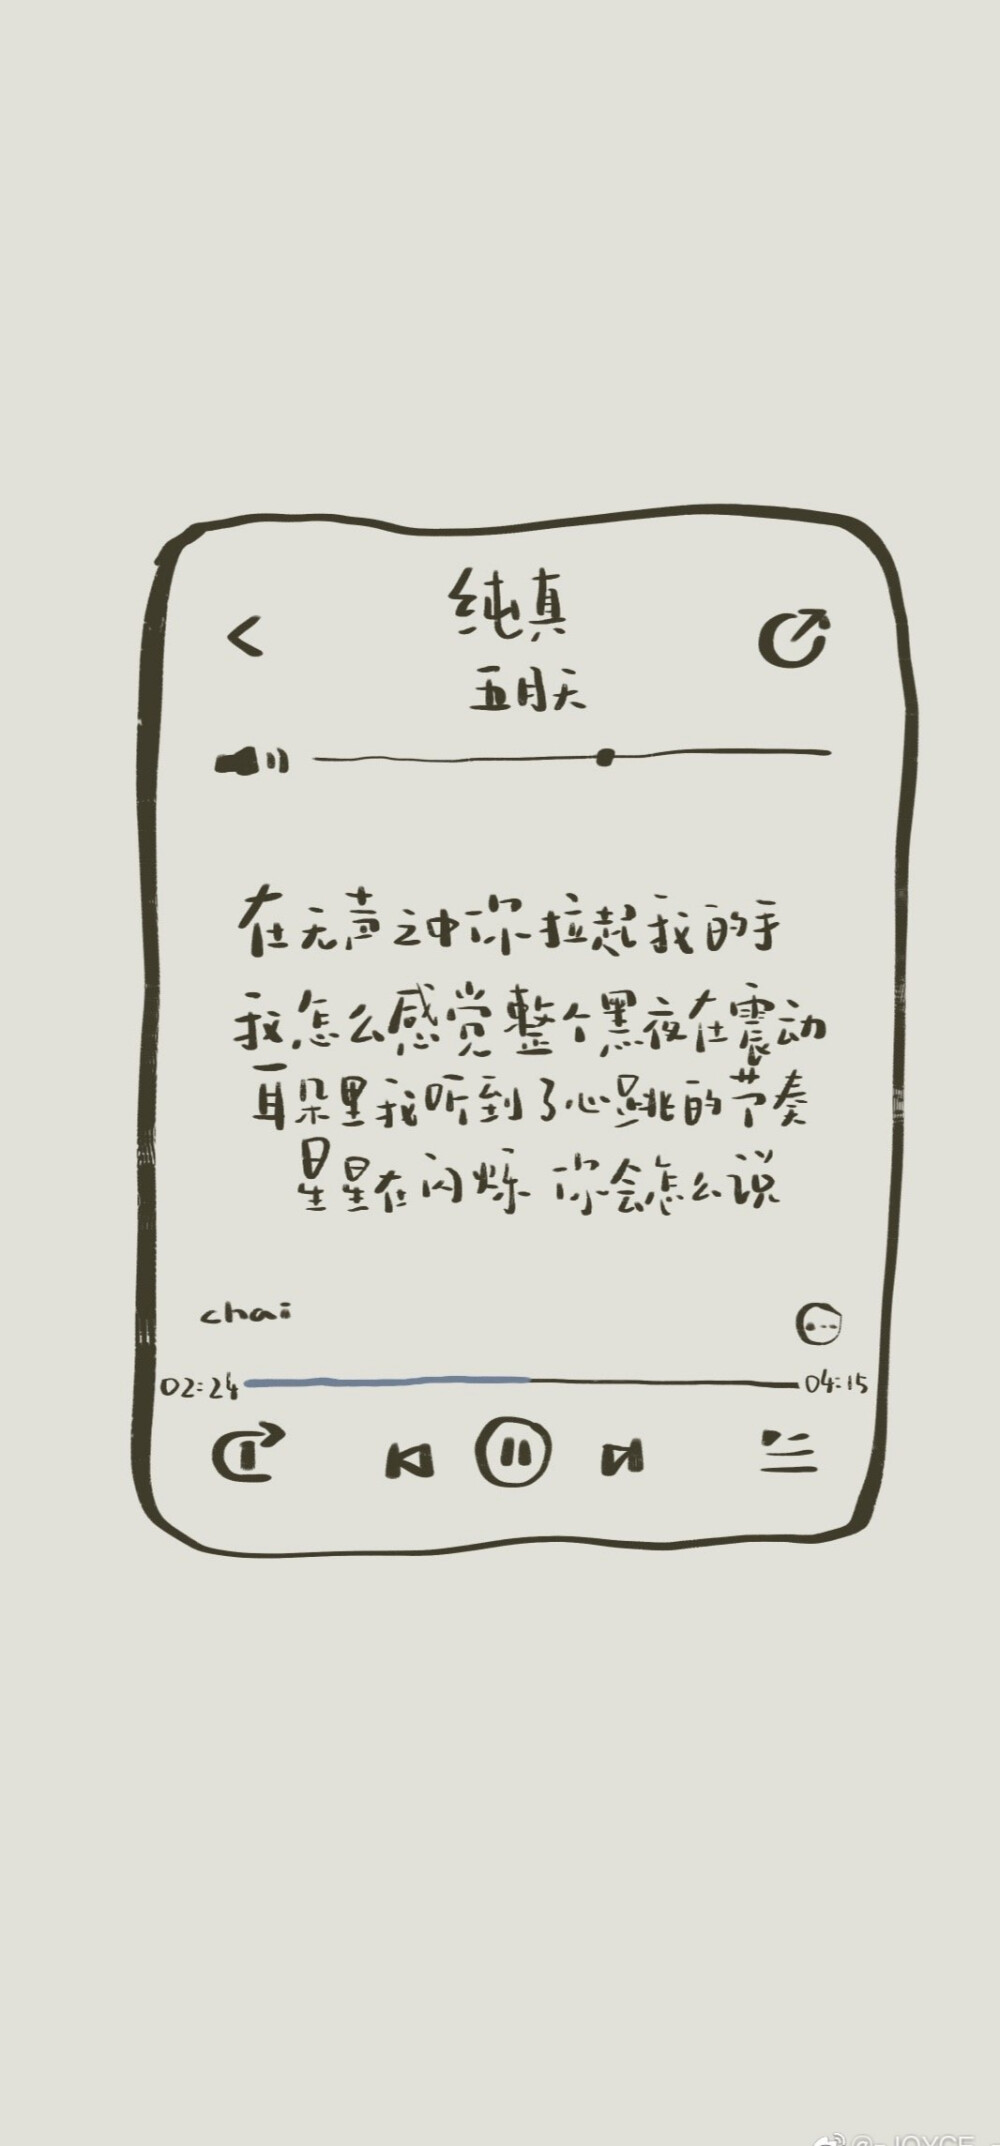 纯真
五月天
在无声之中你拉起我的手
我怎么感觉整个黑夜在震动
耳朵里我听到了心跳的节奏
星星在闪烁 你会怎么说
chai
02:24
04:15